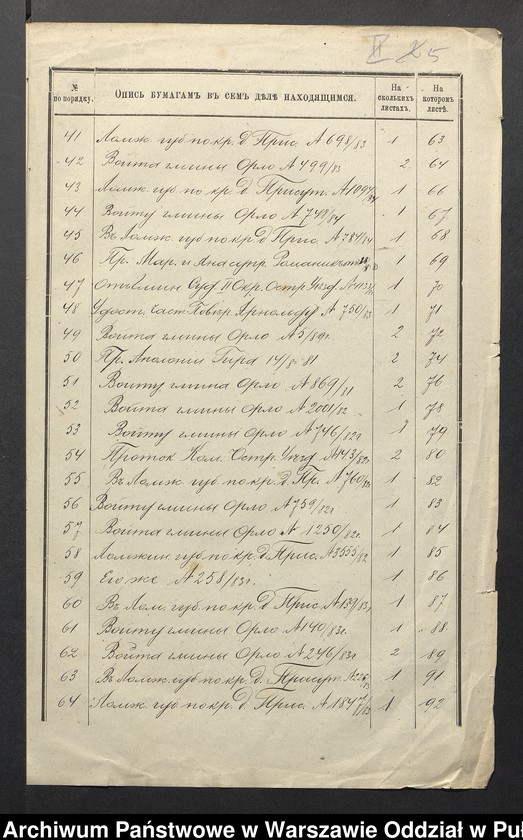 II 25
№ по порядку. Опись бумагамъ въ семъ дѣлѣ находящимся. На сколькихъ листахъ. На которомъ листѣ.
41 Ломж. губ. по кр. д. Прис. № 698/83 1 63
42 Войта гмины Орло № 499/83 2 64
43 Ломж. губ. по кр. д. Присут. № 1094/84 1 66
44 Войту гмины Орло № 742/84 1 67
45 Въ Ломж. губ. по кр. д. Прис. № 784/84 1 68
46 Пр. Мар. и Яна супр. 1 69
47 Отъ Гмин. Суд. II Окр. Остр. Уѣзд. 1 70
48 № 750/83 1 71
49 Войта гмины Орло № 5/89г. 2 72
50 Пр. Аполонии Гира 14/8 81 2 74
51 Войту гмины Орло № 869/81 2 76
52 Войта гмины Орло № 2001/82 1 78
53 Войту гмины Орло № 746/82г 1 79
54 Проток. Ком. Остр. Уѣзд. № 143/82г 2 80
55 Въ Ломж. губ. по кр. д. Пр. № 760/82 1 82
56 Войту гмины Орло № 759/82г 1 83
57 Войта гмины Орло № 1250/82г. 1 84
58 Ломжин. губ. по кр. д. Прис. № 3555/82 1 85
59 Его же № 258/83г. 1 86
60 Въ Лом. губ. по кр. д. Прис. № 139/83г 1 87
61 Войту гмины Орло № 140/83г. 1 88
62 Войта гмины Орло № 246/83г 2 89
63 Въ Ломж. губ. по кр. д. Присут. № 226/83 1 91
64 Ломж. губ. по кр. д. Прис. № 1847/83 1 92
Archiwum Państwowe w Warszawie Oddział w Puł